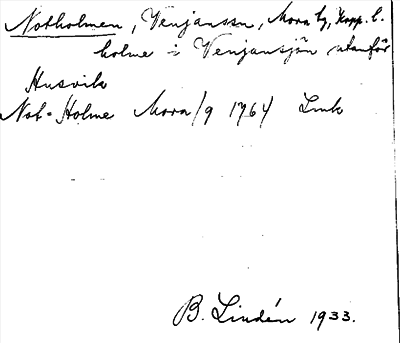 Notholmen, Venjanssn, Mora tg, Kopp. l.
holme i Venjansjön utanför
Husvik
Not-Holme Mora/9 1764/ Lmk
B. Lindén 1933.